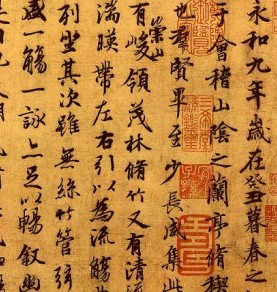 永和九年歲在癸丑暮春之
于會稽山陰之蘭亭脩禊
也群賢畢至少長咸集此
有崇山峻領茂林脩竹又有清
湍暎帶左右引以為流觴
列坐其次雖無絲竹管弦
盛一觴一詠亦足以暢敘幽